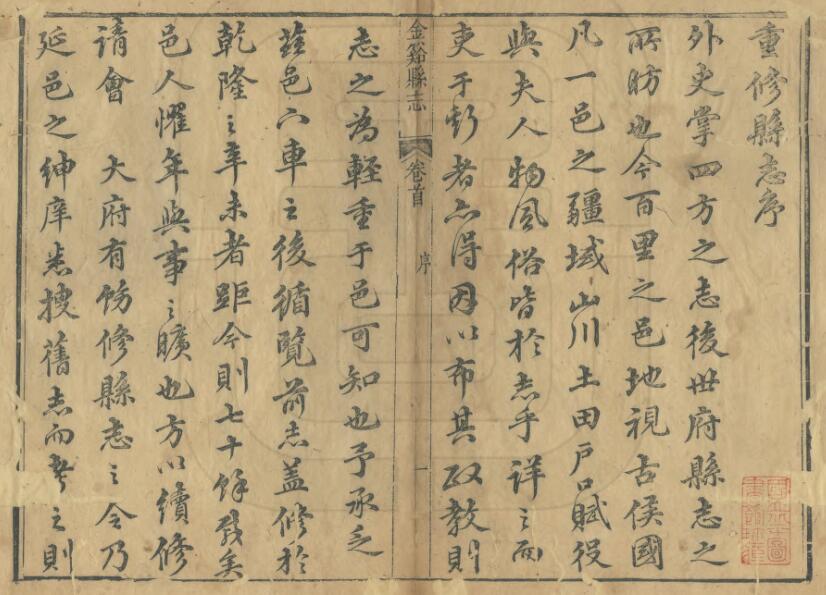 重修縣志序
外史掌四方之志後世府縣志之
所昉也今百里之邑地視古侯國
凡一邑之疆域山川土田戶口賦役
與夫人物風俗皆於志乎詳之而
吏于斯者亦得因以布其政教則
金谿縣志
卷首
序
一
志之為輕重于邑可知也予承乏
茲邑下車之後循覽前志蓋修於
乾隆之辛未者距今則七十餘歲矣
邑人懼年與事之曠也方以續修
請會 大府有飭修縣志之令乃
延邑之紳庠悉搜舊志而考之則